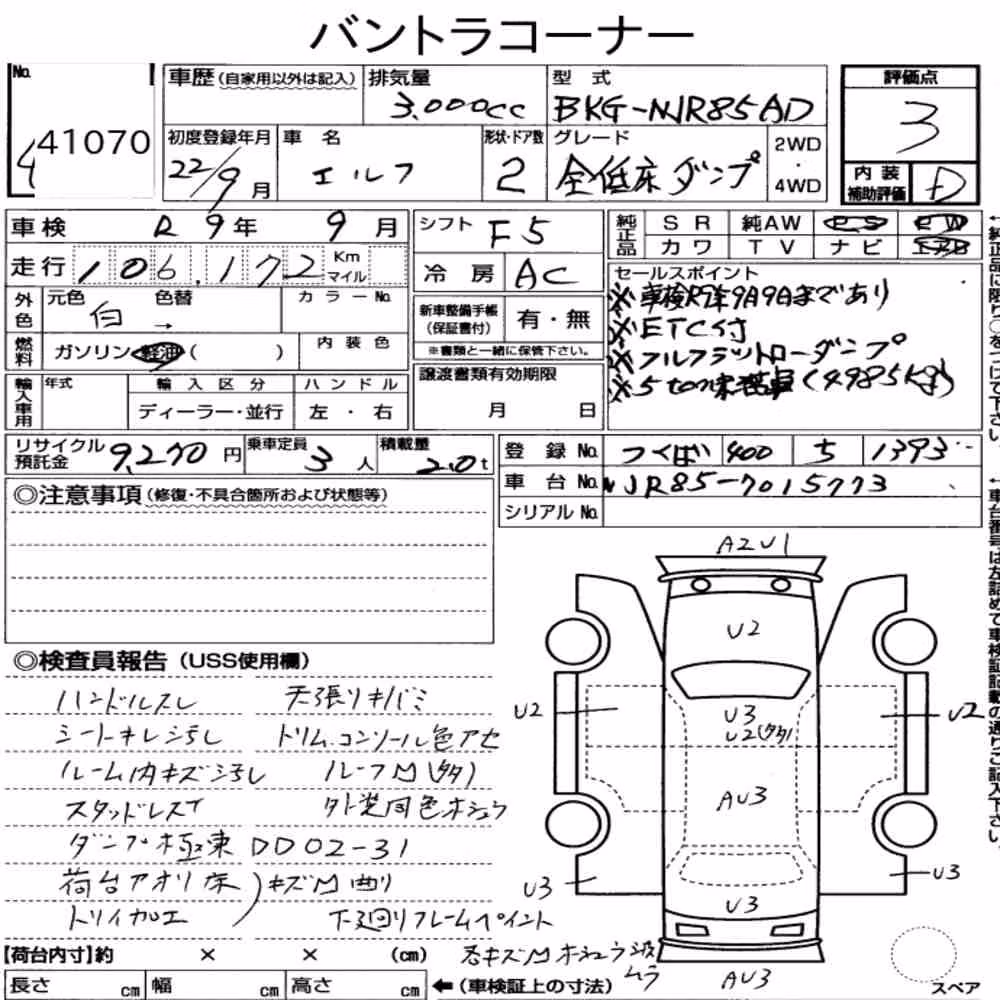 バントラコーナー
No. 41070
車歴(自家用以外は記入) 排気量 3.000cc 型式 BKG-NJR85AD
評価点 3
初度登録年月 22/9月 車名 エルフ 形状・ドア数 2 グレード 全低床ダンプ 2WD・4WD
内装補助評価 D
車検 R9年 9月 シフト F5 純正品 SR 純AW PS PW
カワ TV ナビ
走行 106,172 Km マイル 冷房 AC
セールスポイント
※車検R9年9月9日まであり
※ETC付
※フルフラットローダンプ
※5ton未満車(4985kg)
外色 元色 白 色替 → カラーNo.
新車整備手帳(保証書付) 有・無
※書類と一緒に保管下さい。
燃料 ガソリン 軽油 ( ) 内装色
譲渡書類有効期限 月 日
輸入車用 年式 輸入区分 ハンドル
ディーラー・並行 左・右
リサイクル預託金 9,270円 乗車定員 3人 積載量 2.0t
登録No. つくば 400 ち 1393
車台No. NJR85-7015773
シリアルNo.
◎注意事項(修復・不具合箇所および状態等)
◎検査員報告(USS使用欄)
ハンドルスレ 天張りキバミ
シートキレ汚レ トリム.コンソール色アセ
ルーム内キズ汚レ ルーフM(多)
スタッドレスT 外装同色ホシュウ
ダンプ極東 DD02-31
荷台アオリ床 キズM曲り
トリイカエ 下廻りフレームペイント
各キズMホシュウ跡ムラ
【荷台内寸】約 × × (cm)
長さ cm 幅 cm 高さ cm ←(車検証上の寸法)
A2U1
U2
U3
U2(多)
U2
U2
AU3
U3
U3
U3
AU3
スペア
←純正品に限り○をつけて下さい。
←車台番号は左詰めで車検証記載の通りご記入下さい。